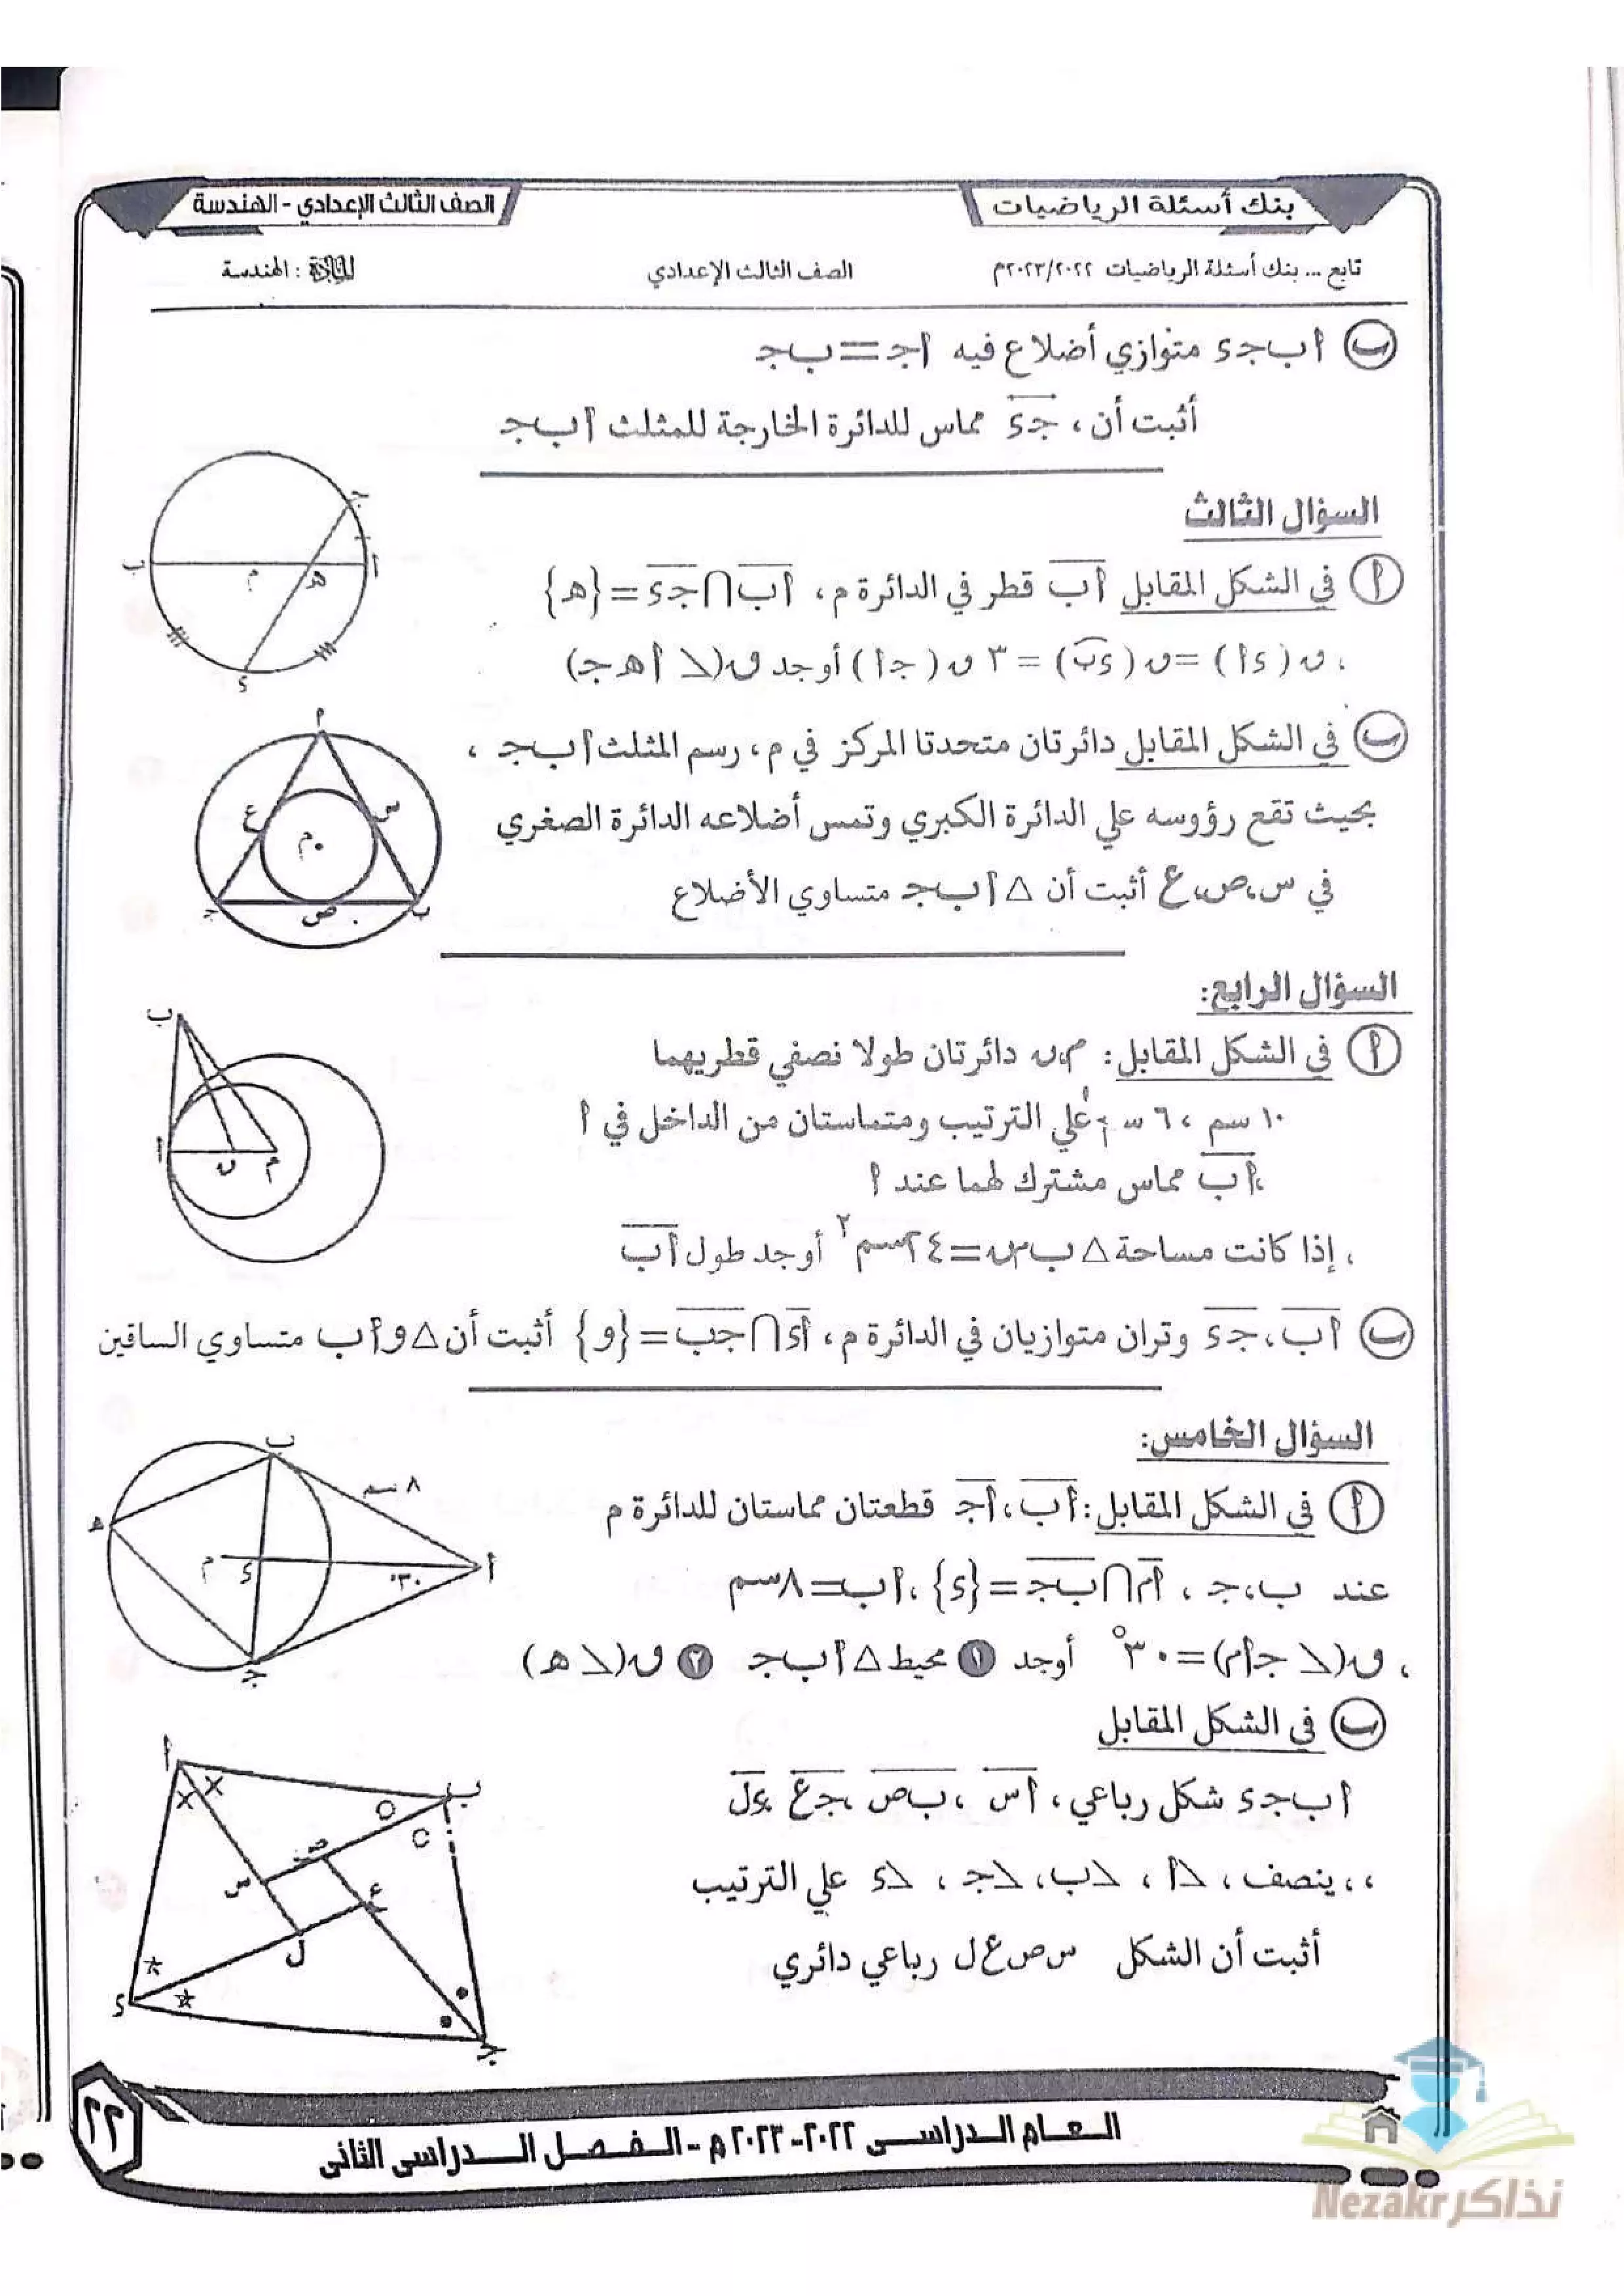 بنك أسئلة الرياضيات
الصف الثالث الإعدادي - الهندسة
تابع ... بنك أسئلة الرياضيات ٢٠٢٣/٢٠٢٢م الصف الثالث الإعدادي المادة : الهندسة
ب أ ب ج د متوازي أضلاع فيه أ ج = ب ج
أثبت أن ، ج د مماس للدائرة الخارجة للمثلث أ ب ج
السؤال الثالث
أ في الشكل المقابل أ ب قطر في الدائرة م ، أ ب ∩ ج د = {هـ}
، ق (د أ) = ق (د ب) = ٣ ق (ج أ) أوجد ق(∠ أ هـ ج)
ج
ب م هـ أ
د
ب في الشكل المقابل دائرتان متحدتا المركز في م ، رسم المثلث أ ب ج ،
بحيث تقع رؤوسه علي الدائرة الكبري وتمس أضلاعه الدائرة الصغري
في س ، ص ، ع أثبت أن △ أ ب ج متساوي الأضلاع
أ
ع س
م
ج ص ب
السؤال الرابع:
أ في الشكل المقابل : م ، ن دائرتان طولا نصفي قطريهما
١٠ سم ، ٦ سم علي الترتيب ومتماستان من الداخل في أ
، أ ب مماس مشترك لهما عند أ
، إذا كانت مساحة △ ب م ن = ٢٤ سم٢ أوجد طول أ ب
ب
أ ن م
ب أ ب ، ج د وتران متوازيان في الدائرة م ، أ د ∩ ج ب = {و} أثبت أن △ و أ ب متساوي الساقين
السؤال الخامس:
أ في الشكل المقابل : أ ب ، أ ج قطعتان مماستان للدائرة م
عند ب ، ج ، أ م ∩ ب ج = {د} ، أ ب = ٨ سم
، ق(∠ ج أ م) = ٣٠° أوجد ١ محيط △ أ ب ج ٢ ق(∠ هـ)
ب
٨ سم
هـ
م د ٣٠° أ
ج
ب في الشكل المقابل
أ ب ج د شكل رباعي ، أ س ، ب ص ، ج ع ، د ل
، ، ينصف ، ∠أ ، ∠ب ، ∠ج ، ∠د علي الترتيب
أثبت أن الشكل س ص ع ل رباعي دائري
أ
ب
ص
س ع
ل
د
ج
٢٢
العام الدراسى ٢٠٢٢-٢٠٢٣ م - الفصل الدراسى الثانى
نذاكر Nezakr